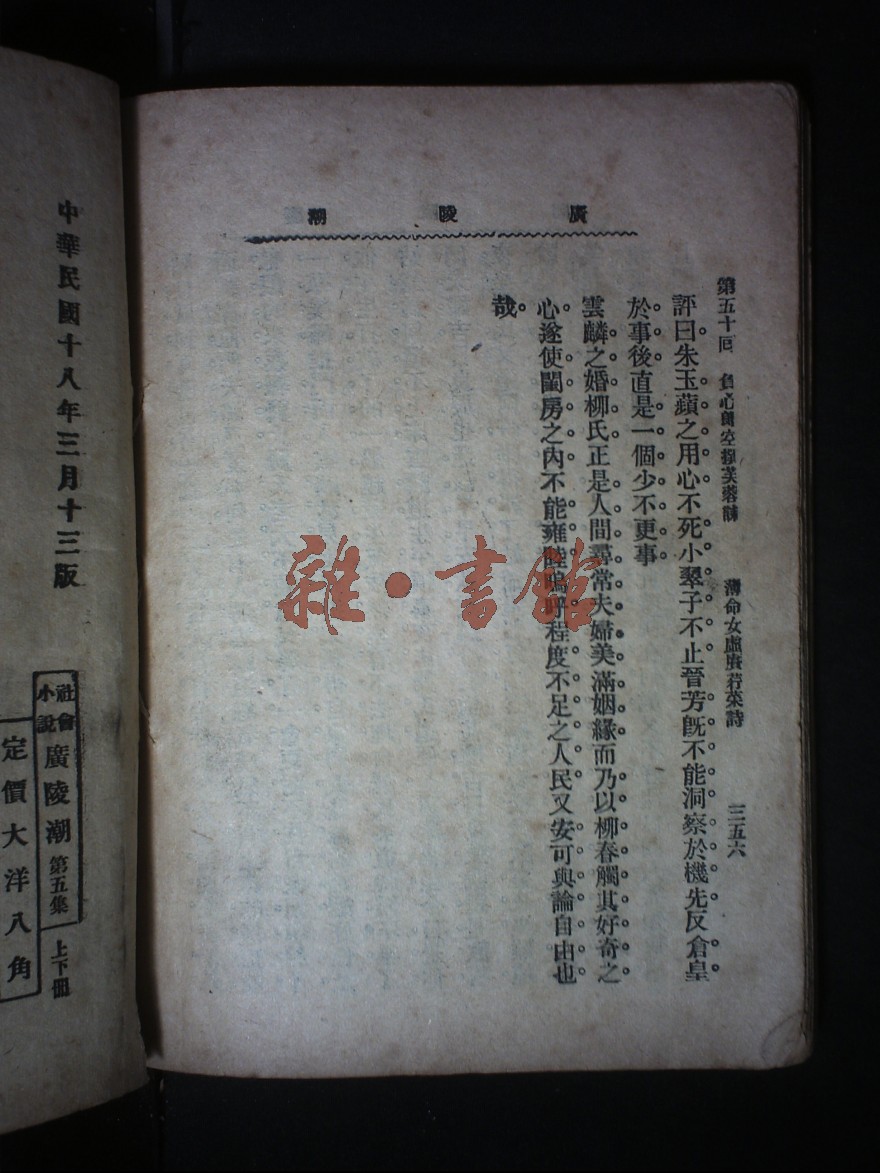 廣陵潮
第五十回 負心郎空撰芙蓉誄 薄命女虛賡荇菜詩 三五六
評曰朱玉蘋之用心不死小翠子不止晉芳旣不能洞察於機先反倉皇
於事後直是一個少不更事
雲麟之婚柳氏正是人間尋常夫婦美滿姻緣而乃以柳春觸其好奇之
心遂使閨房之內不能雍睦嗚呼程度不足之人民又安可與論自由也
哉
雜·書館
中華民國十八年三月十三版
社會小說 廣陵潮 第五集 上下冊
定價大洋八角